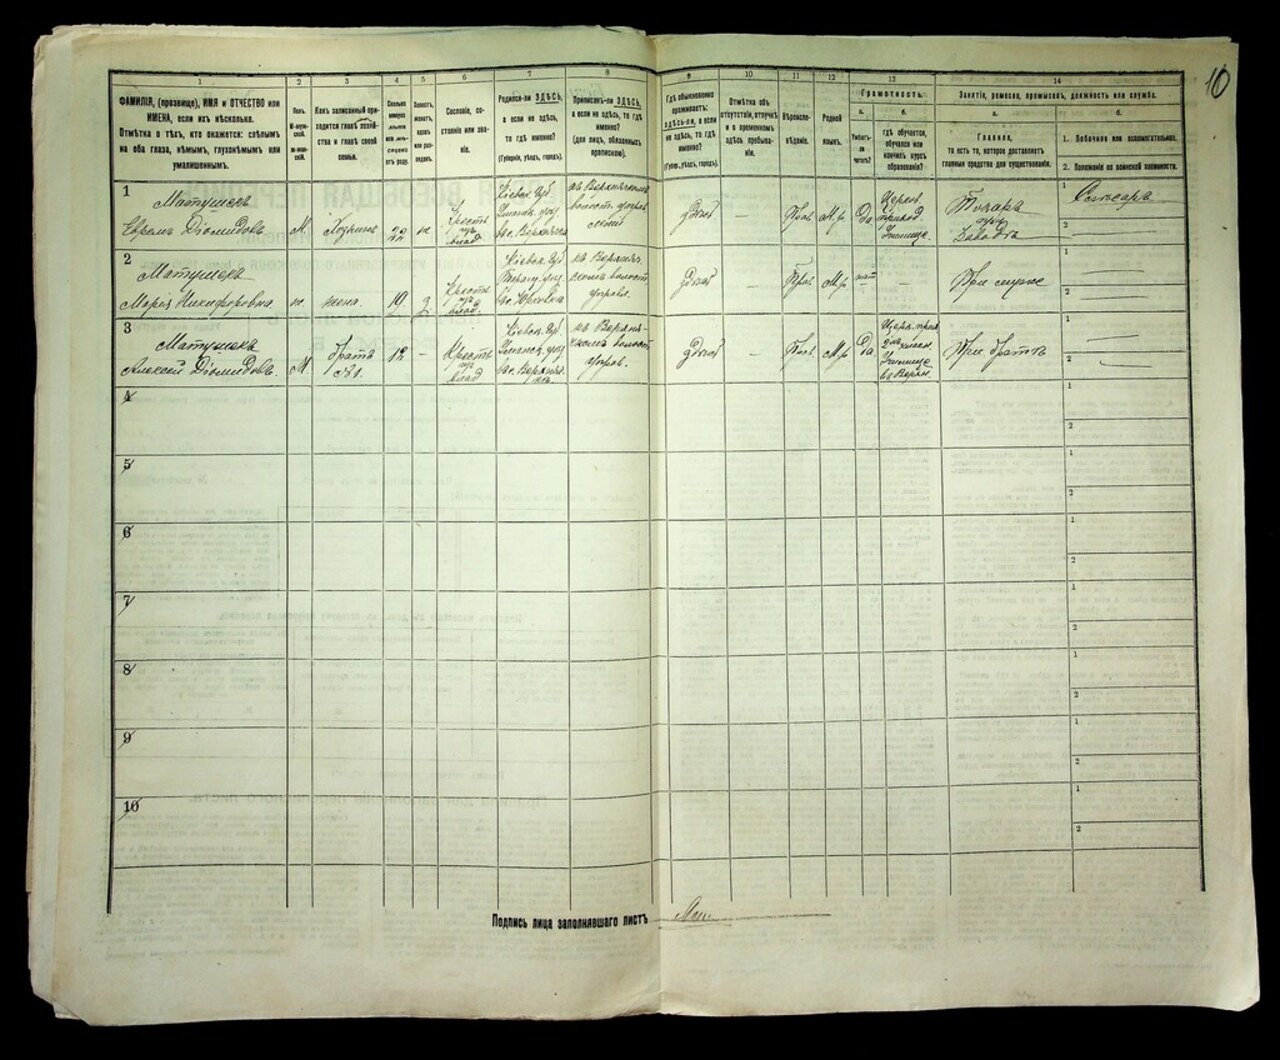 10
1
2
3
4
5
6
7
8
9
10
11
12
13
14
ФАМИЛІЯ, (прозвище), ИМЯ и ОТЧЕСТВО или
ИМЕНА, если ихъ нѣсколько.
Отмѣтка о тѣхъ, кто окажется: слѣпымъ
на оба глаза, нѣмымъ, глухонѣмымъ или
умалишеннымъ.
Полъ.
М-муж-
ской.
Ж-жен-
скій.
Какъ записанный при-
ходится главѣ хозяй-
ства и главѣ своей
семьи.
Сколько
минуло
лѣтъ
или мѣ-
сяцевъ
отъ роду.
Холостъ,
женатъ,
вдовъ
или раз-
веденъ.
Сословіе, со-
стояніе или зва-
ніе.
Родился-ли ЗДѢСЬ,
а если не здѣсь,
то гдѣ именно?
(Губернія, уѣздъ, городъ).
Приписанъ-ли ЗДѢСЬ,
а если не здѣсь, то гдѣ
именно?
(для лицъ, обязанныхъ
припискою).
Гдѣ обыкновенно
проживаетъ:
здѣсь-ли, а если
не здѣсь, то гдѣ
именно?
(Губ., уѣздъ, городъ).
Отмѣтка объ
отсутствіи, отлучкѣ
и о временномъ
здѣсь пребыва-
ніи.
Вѣроиспо-
вѣданіе.
Родной
языкъ.
Грамотность.
а.
Умѣетъ-
ли
читать?
б.
гдѣ обучается,
обучался или
кончилъ курсъ
образованія?
Занятіе, ремесло, промыселъ, должность или служба.
а.
Главное,
то есть то, которое доставляетъ
главныя средства для существованія.
б.
1. Побочное или вспомогательное.
2. Положеніе по воинской повинности.
1
Матушекъ
Ефремъ Діомидовъ
М.
Хозяинъ
22
Крестъ
изъ
влад
Кіевск. Губ
Уманск. уѣзд
въ с. Верхнячка
къ Верхняческой
волост. управ
здѣсь
—
Прав
М. р
Да
Церков.
приход
Училище.
Токаръ
Завода
Слесаръ
1
2
2
Матушекъ
Марія Никифоровна
ж.
жена.
19
з
Крестъ
изъ
влад.
Кіевск. Губ
въ с. Юрковка
къ Верхняч.
ской волост.
управл.
здѣсь
—
Прав.
М. р
нѣтъ
—
При мужѣ
1
2
3
Матушекъ
Алексѣй Діомидовъ.
М.
братъ
12
—
Крестъ
изъ
влад
Кіевск. Губ
Уманск. уѣзд
въ с. Верхняч.
къ Верхня-
ской волост
управ.
здѣсь
—
Прав.
М. р
да
Училище
въ Верхн.
При братѣ
1
2
4
1
2
5
1
2
6
1
2
7
1
2
8
1
2
9
1
2
10
1
2
Подпись лица заполнявшаго листъ